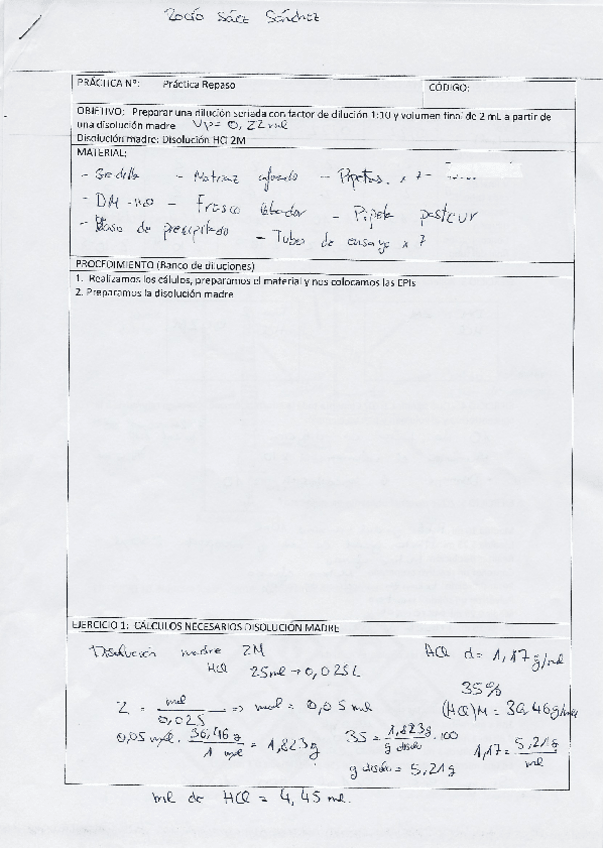 Rocío Sáez Sánchez
PRÁCTICA Nº: Práctica Repaso
CÓDIGO:
OBJETIVO: Preparar una dilución seriada con factor de dilución 1:10 y volumen final de 2 mL a partir de
una disolución madre Vp= 0,22 ml
Disolución madre: Disolución HCl 2M
MATERIAL:
- Gradilla - Matraz aforado - Pipetas x 7
- Frasco lavador - Pipeta pasteur
- Vaso de precipitado - Tubos de ensayo x 7
PROCEDIMIENTO (Banco de diluciones)
1. Realizamos los cálulos, preparamos el material y nos colocamos las EPIs
2. Preparamos la disolución madre
EJERCICIO 1: CALCULOS NECESARIOS DISOLUCIÓN MADRE
Disolución madre 2M
HCl 25ml → 0,025L
HCl d= 1,17 g/ml
35%
(HCl)M = 36,46 g/mol
2 = mol / 0,025 => mol = 0,05 ml
0,05 mol · 36,46 g / 1 mol = 1,823 g
35 = 1,823g / g disol · 100
g disolc = 5,21 g
1,17 = 5,21g / ml
ml de HCl = 4,45 ml.